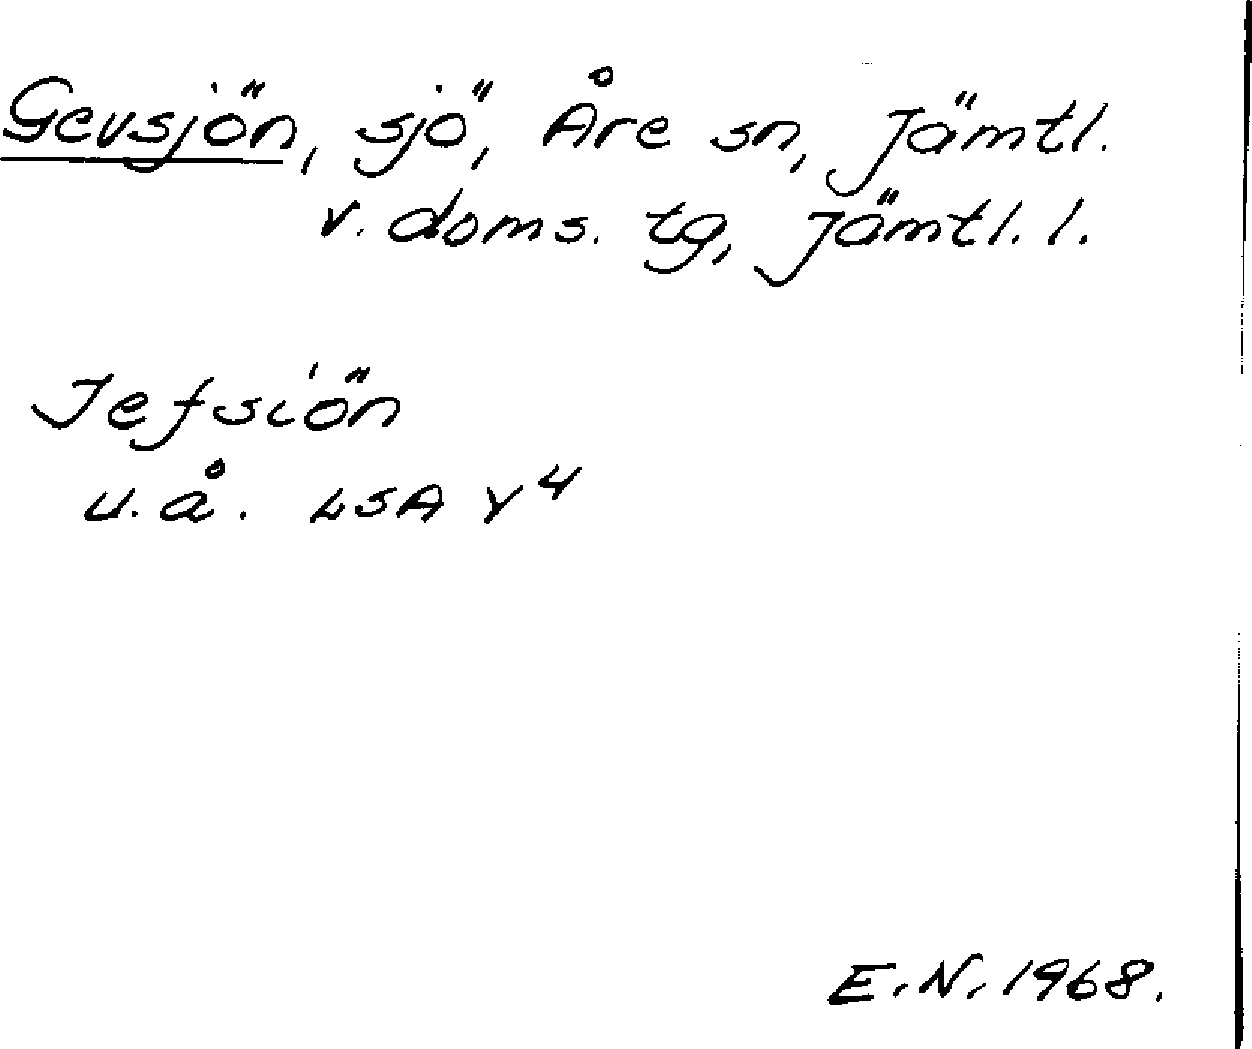 Gevsjön, sjö, Åre sn, Jämtl.
v. doms. tg, Jämtl. l.
Jefsiön
u.å. LSA Y 4
E.N. 1968.